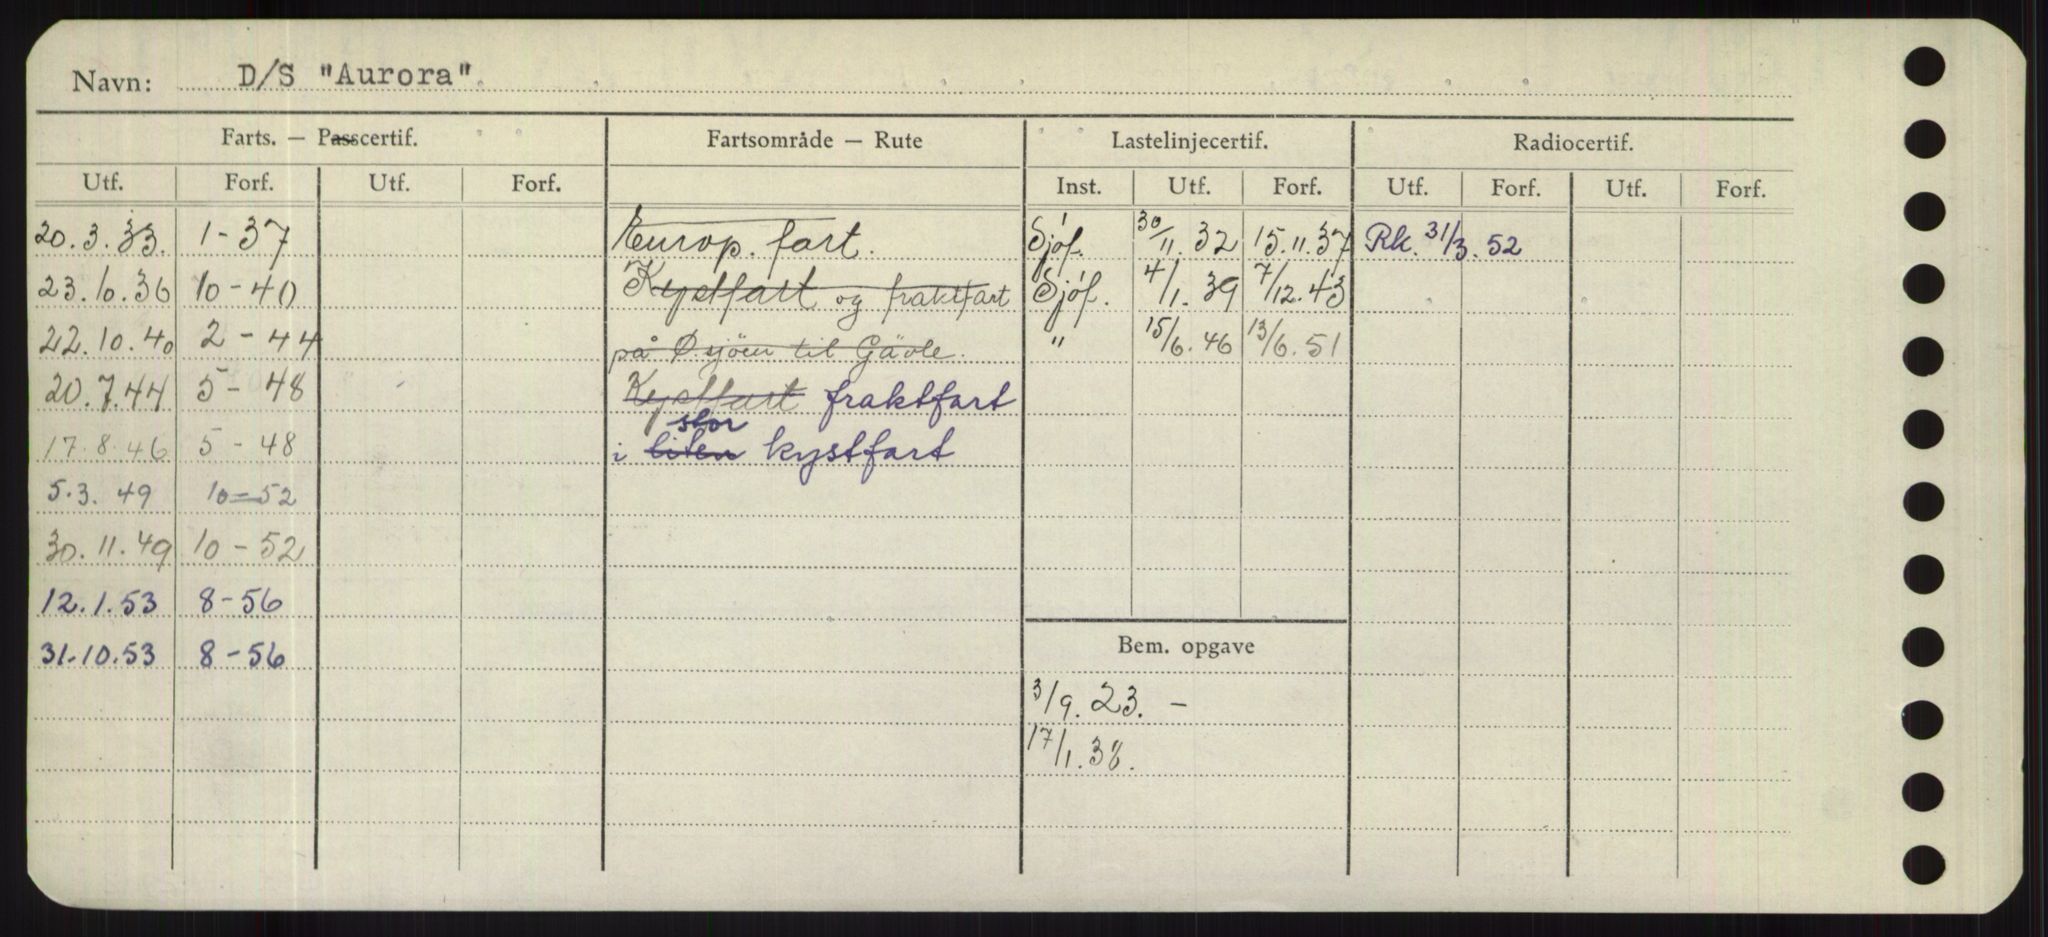 Navn: D/S "Aurora".
Farts. — Passcertif. Fartsområde — Rute Lastelinjecertif. Radiocertif.
Utf. Forf. Utf. Forf. Inst. Utf. Forf. Utf. Forf. Utf. Forf.
20.3.33. 1-37 Europ. fart. Sjöf. 30/11.32 15.11.37 Rk. 31/3.52
23.10.36 10-40 Kystfart og fraktfart Sjöf. 4/1.39 7/12.43
22.10.40 2-44 på Ø.sjöen til Gävle. " 15/6.46 13/6.51
20.7.44 5-48 Kystfart fraktfart
stor
17.8.46 5-48 i liten kystfart
5.3.49 10-52
30.11.49 10-52
12.1.53 8-56
31.10.53 8-56 Bem. opgave
3/9.23. -
17/1.38.